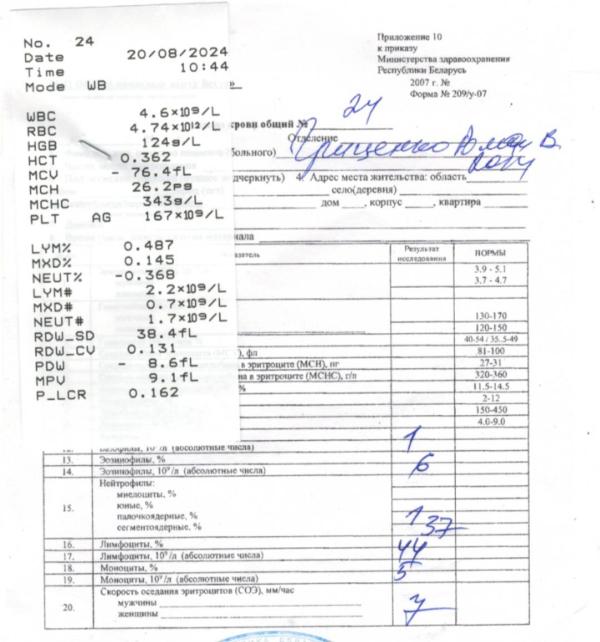 No. 24
Date 20/08/2024
Time 10:44
Mode WB
WBC 4.6×10^9/L
RBC 4.74×10^12/L
HGB 124g/L
HCT 0.362
MCV - 76.4fL
MCH 26.2pg
MCHC 343g/L
PLT AG 167×10^9/L
LYM% 0.487
MXD% 0.145
NEUT% -0.368
LYM# 2.2×10^9/L
MXD# 0.7×10^9/L
NEUT# 1.7×10^9/L
RDW_SD 38.4fL
RDW_CV 0.131
PDW - 8.6fL
MPV 9.1fL
P_LCR 0.162
Приложение 10
к приказу
Министерства здравоохранения
Республики Беларусь
2007 г. №
Форма № 209/у-07
крови общий № 24
Отделение
больного) Гриценко Роман В.
4. Адрес места жительства: область
село(деревня)
дом , корпус , квартира
Результат исследования НОРМЫ
3.9 - 5.1
3.7 - 4.7
130-170
120-150
40-54 / 35..5-49
), фл 81-100
в эритроците (МСН), пг 27-31
на в эритроците (МСНС), г/л 320-360
% 11.5-14.5
2-12
150-450
4.0-9.0
1
13. Эозинофилы, % 6
14. Эозинофилы, 10⁹/л (абсолютные числа)
15. Нейтрофилы:
миелоциты, %
юные, %
палочкоядерные, % 1
сегментоядерные, % 37
16. Лимфоциты, % 44
17. Лимфоциты, 10⁹/л (абсолютные числа)
18. Моноциты, % 5
19. Моноциты, 10⁹/л (абсолютные числа)
20. Скорость оседания эритроцитов (СОЭ), мм/час 7
мужчины
женщины